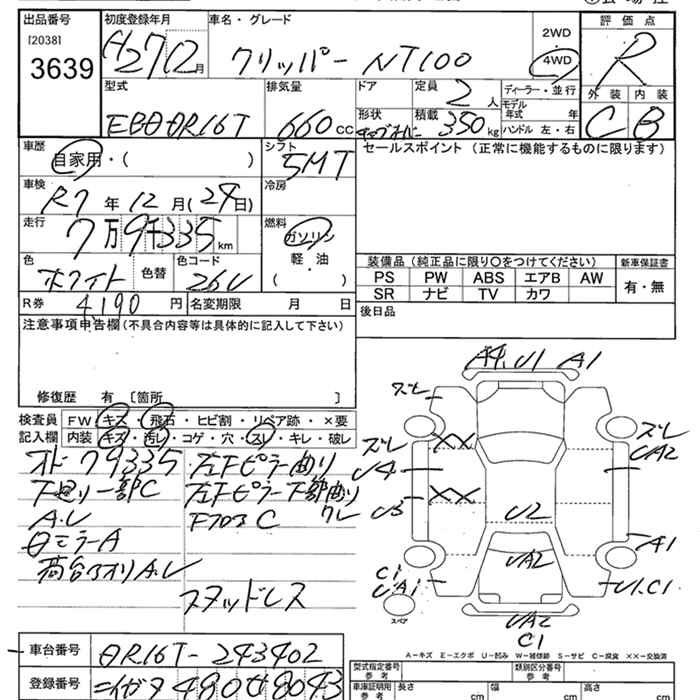 出品番号
[2038]
3639
初度登録年月
H27 12月
車名・グレード
クリッパー NT100
2WD
4WD
評価点
R
外装 内装
C B
型式
EBD DR16T
排気量
660cc
ドア
形状
定員
2人
積載
350kg
ディーラー・並行
モデル年式 年
ハンドル 左・右
車歴
自家用・( )
シフト
5MT
セールスポイント (正常に機能するものに限ります)
車検
R7年 12月(24日)
冷房
走行
7万9千335km
燃料
ガソリン
軽・油
( )
色
ホワイト
色替
色コード
26U
装備品 (純正品に限り○をつけてください)
新車保証書
PS PW ABS エアB AW
SR ナビ TV カワ
有・無
R券 4190円
名変期限 月 日
後日品
注意事項申告欄 (不具合内容等は具体的に記入して下さい)
修復歴 有 [箇所 ]
検査員記入欄
FW キズ・飛石・ヒビ割・リペア跡・×要
内装 キズ・汚レ・コゲ・穴・スレ・キレ・破レ
オド79335
下廻り一部C
A.U
ミラーA
荷台
A.U
左Fピラー曲り
左Fピラー下部曲り
Fフロア C
スタッドレス
A4,U1 A1
ズレ
ズレ
UA2
U4
XX
U3
XX
U2
A1
C1
UA1
UA2
U1.C1
スペア
UA2
C1
A－キズ E－エクボ U－凹み W－補修跡 S－サビ C－腐食 XX－交換済
車台番号
DR16T-243402
登録番号
ニイガタ 480 8043
型式指定番号 参考
類別区分番号 参考
車庫証明用 参考
長さ cm
幅 cm
高さ cm